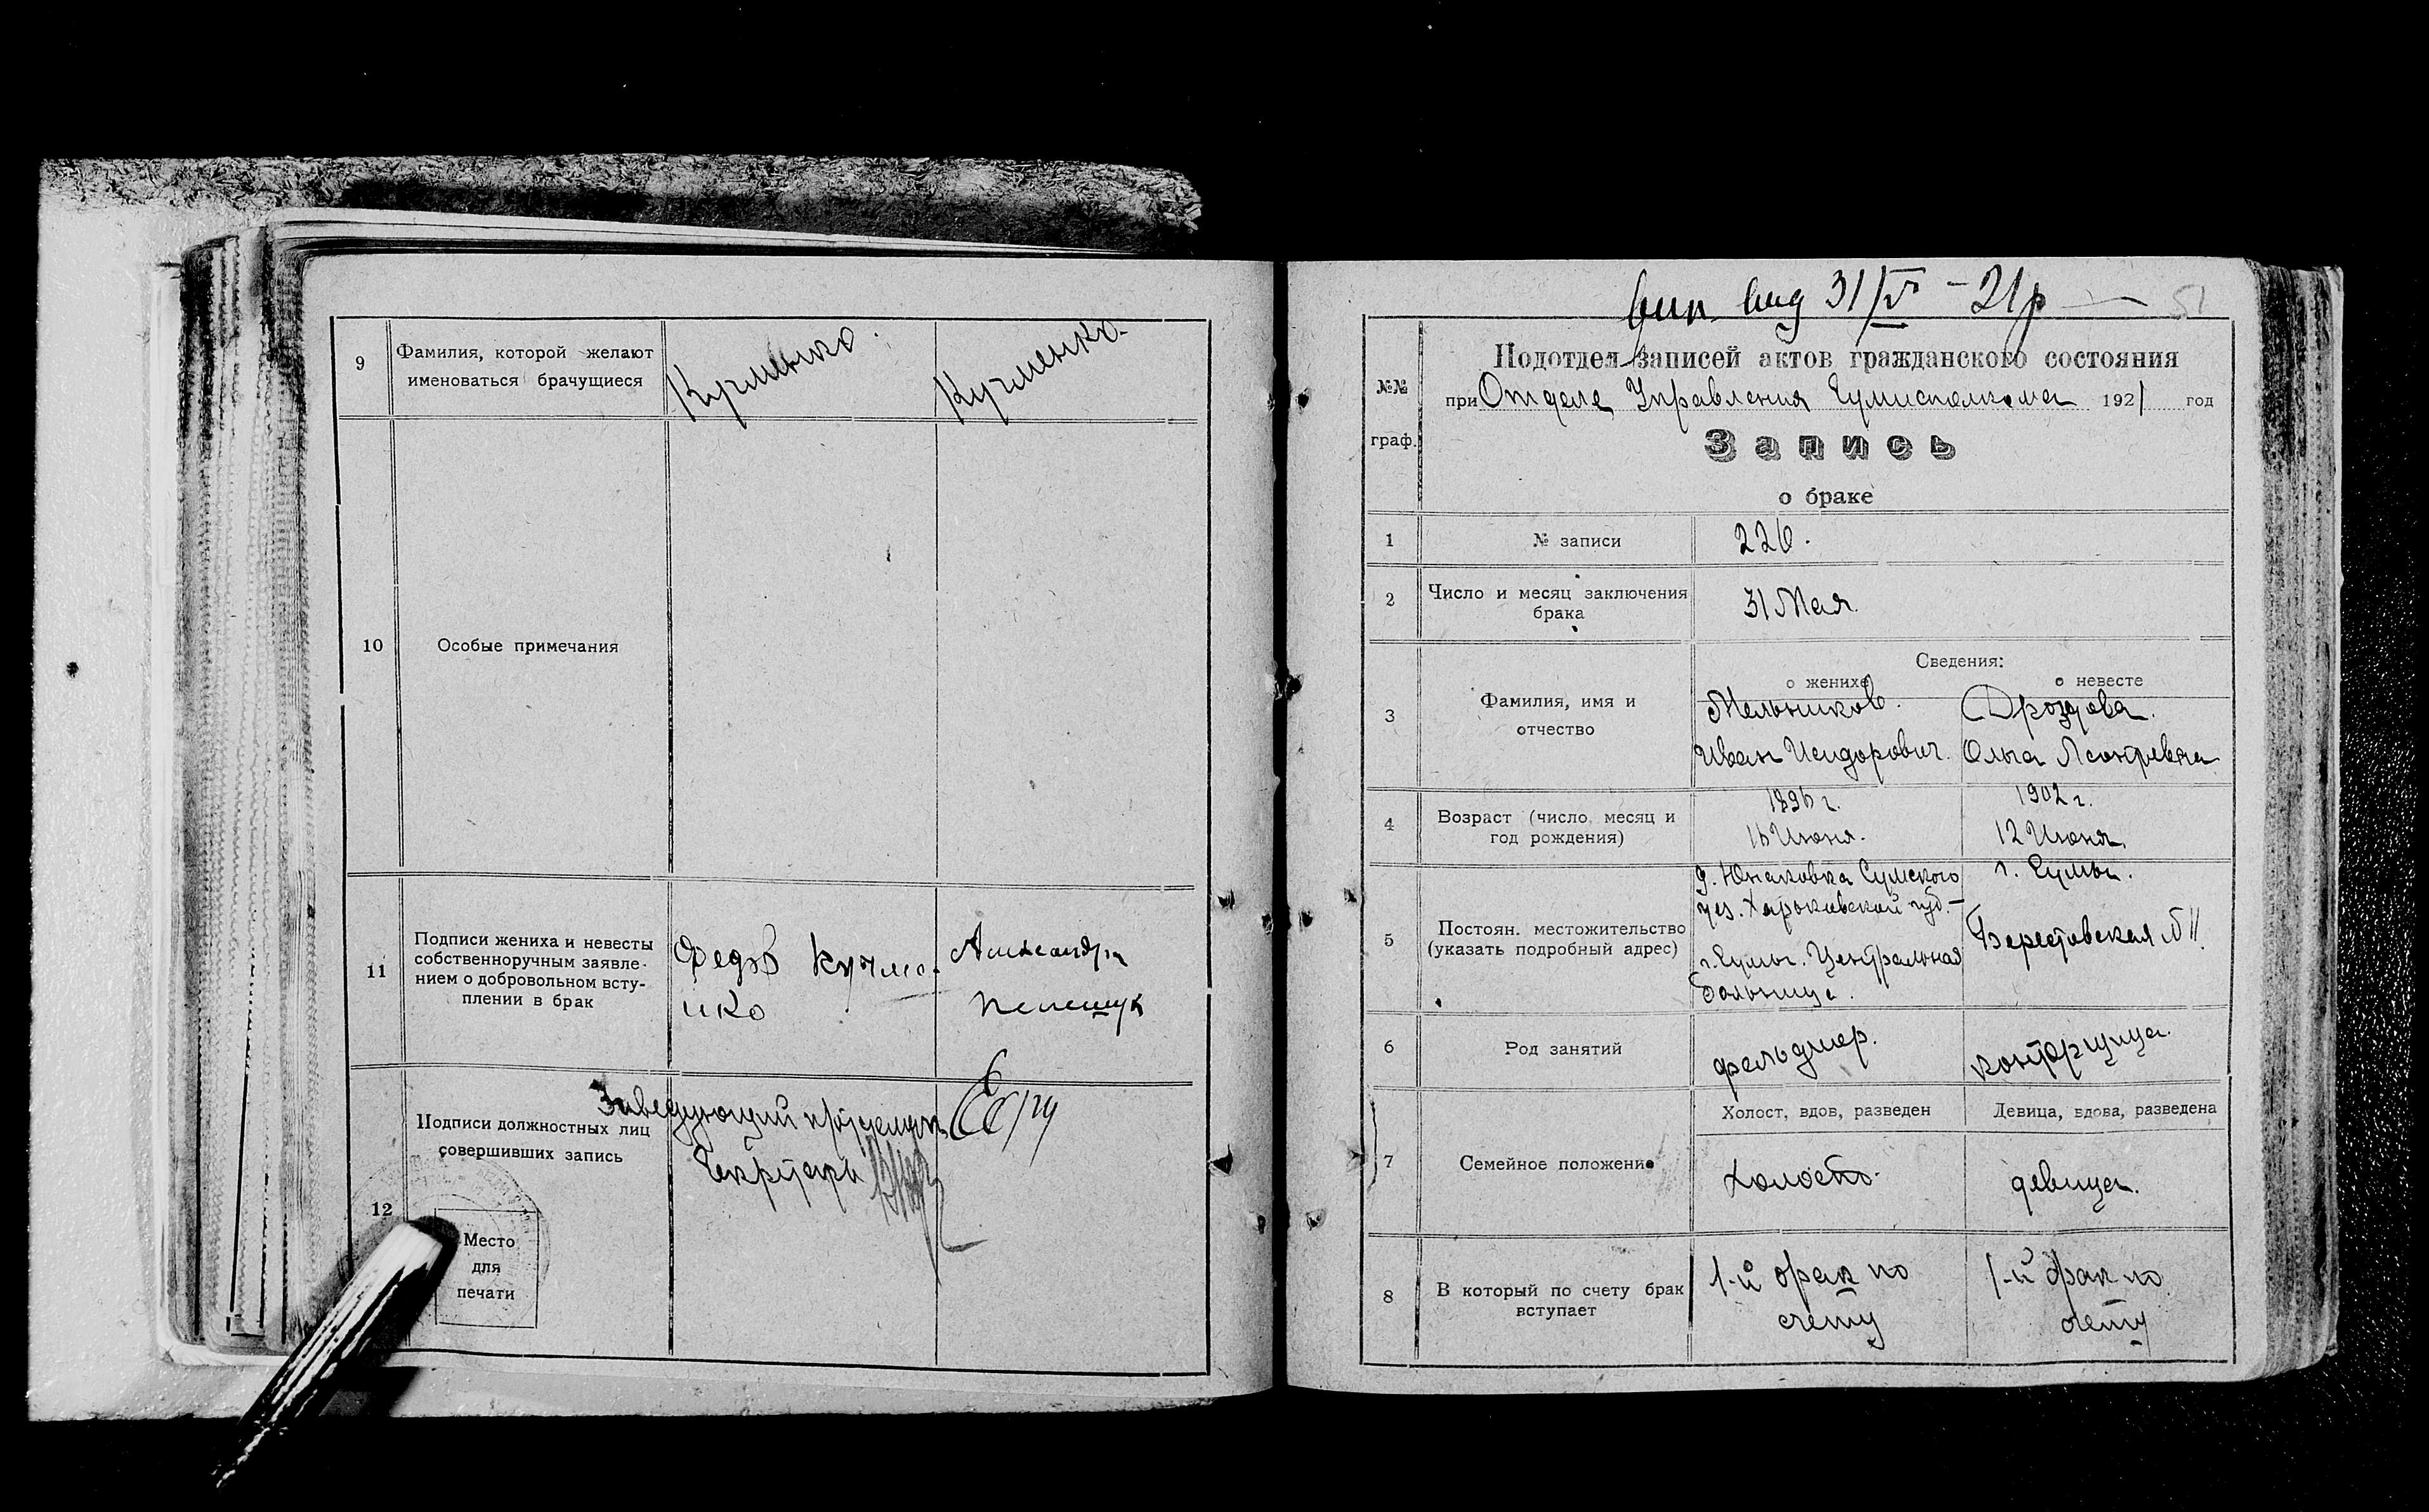 9
Фамилия, которой желают
именоваться брачущиеся
Кучменко.
Кучменко.
10
Особые примечания
11
Подписи жениха и невесты
собственноручным заявле-
нием о добровольном всту-
плении в брак
Федор Кучме-
нко
Александра
12
Подписи должностных лиц
совершивших запись
Заведующий
Секретарь
Место
для
печати
вид 31/V - 21 р
51
№№
граф.
Подотдел записей актов гражданского состояния
при Отделе Управления Сумисполкома 1921 год
Запись
о браке
1
№ записи
226.
2
Число и месяц заключения
брака
31 Мая.
Сведения:
о женихе
о невесте
3
Фамилия, имя и
отчество
Мельников.
Иван Исидорович.
Дроздова.
Ольга Леонтьевна
4
Возраст (число, месяц и
год рождения)
1896 г.
16 Июня.
1902 г.
12 Июня.
5
Постоян. местожительство
(указать подробный адрес)
д. Юнаковка Сумского
уез. Харьковской губ. –
г. Сумы. Центральная
больница.
г. Сумы.
Берестовская № 11.
6
Род занятий
фельдшер.
конторщица.
7
Семейное положение
Холост, вдов, разведен
Девица, вдова, разведена
холост.
девица.
8
В который по счету брак
вступает
1-й брак по
счету
1-й брак по
счету